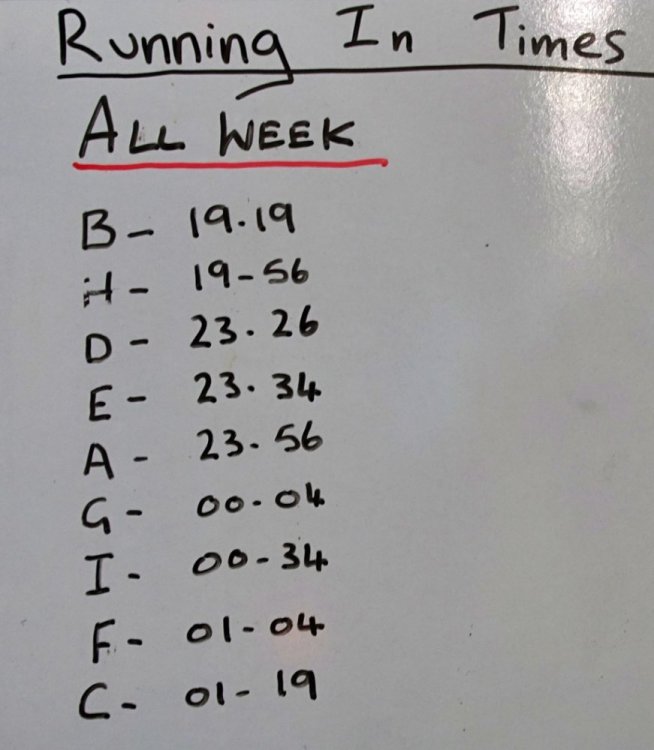 Running In Times
ALL WEEK
B - 19.19
H - 19-56
D - 23.26
E - 23.34
A - 23.56
G - 00-04
I - 00-34
F - 01-04
C - 01-19